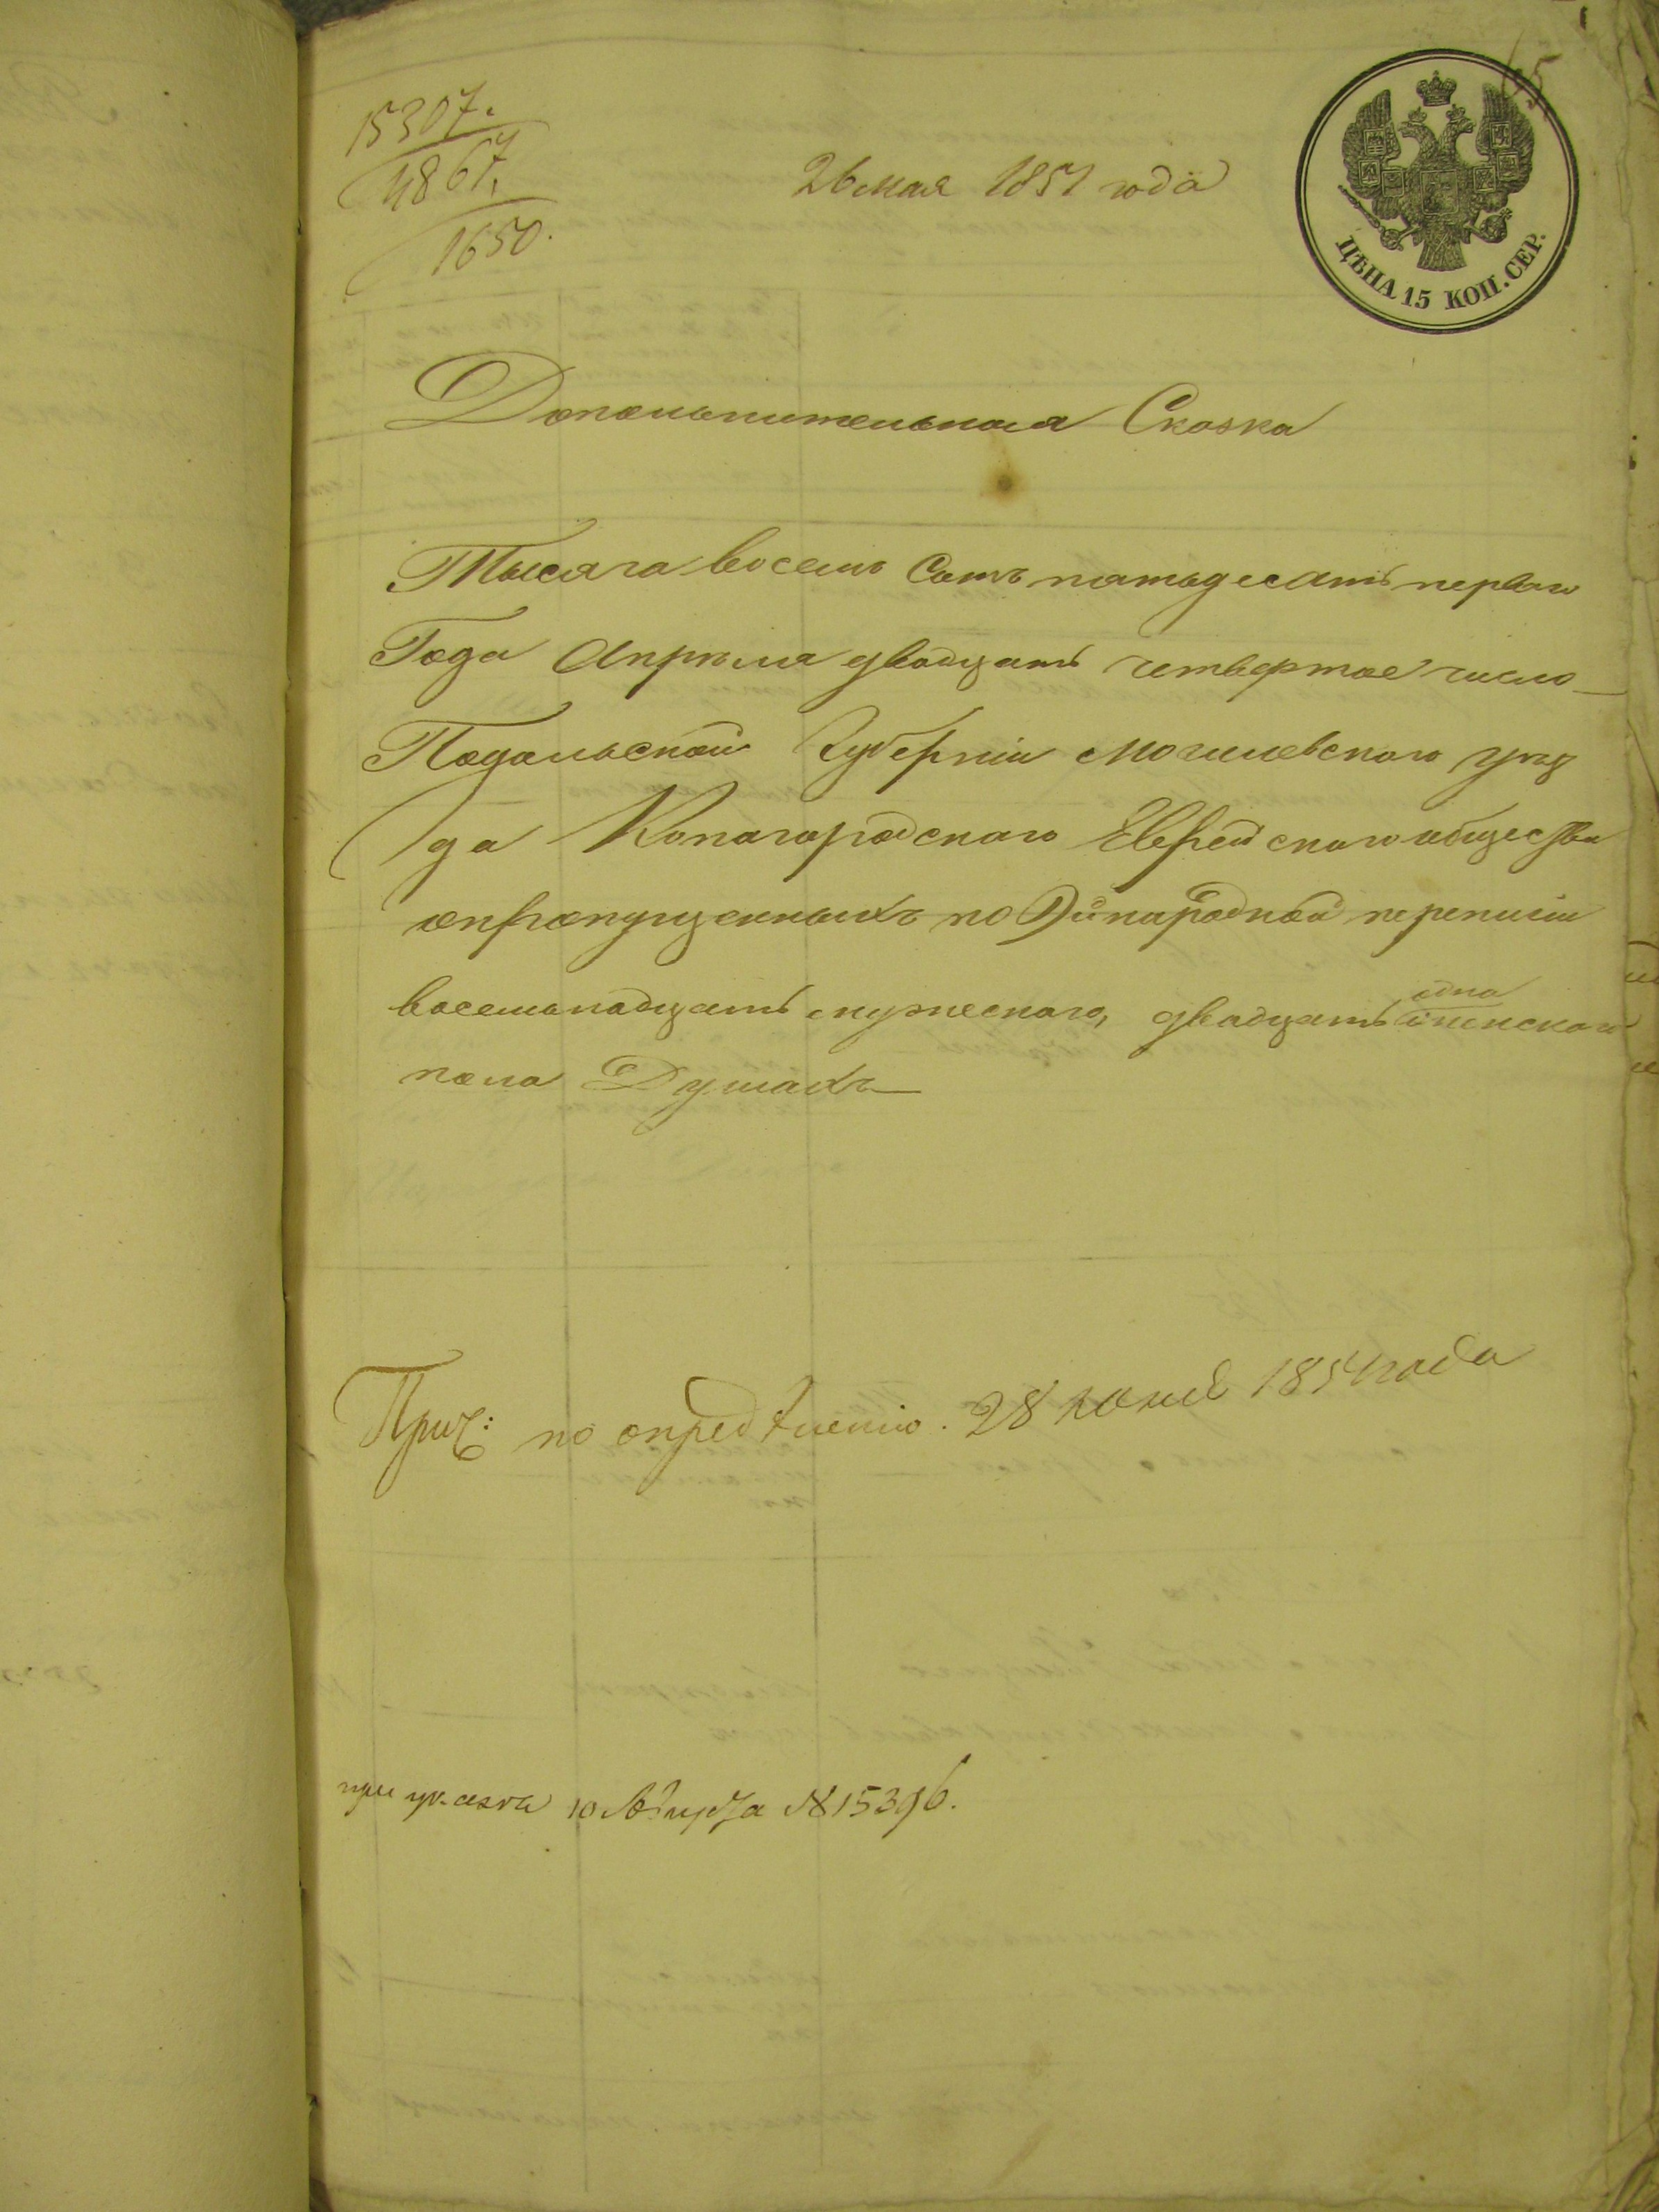 15307.
4867.
1650.
26 мая 1851 года
65
ЦѢНА 15 КОП. СЕР.
Дополнительная Сказка
Тысяча восемь Сотъ пятьдесятъ первого
Года Апрѣля двадцать четвертое число
Подольской Губерніи Могилевского уѣз
да Копагородского Еврейского общества
опропущенныхъ по 9й народной переписи
восемьнадцать мужеского, двадцать одна женского
пола Душахъ
по опредѣленію. 28 1851 года
при указѣ 10 Августа № 15396.